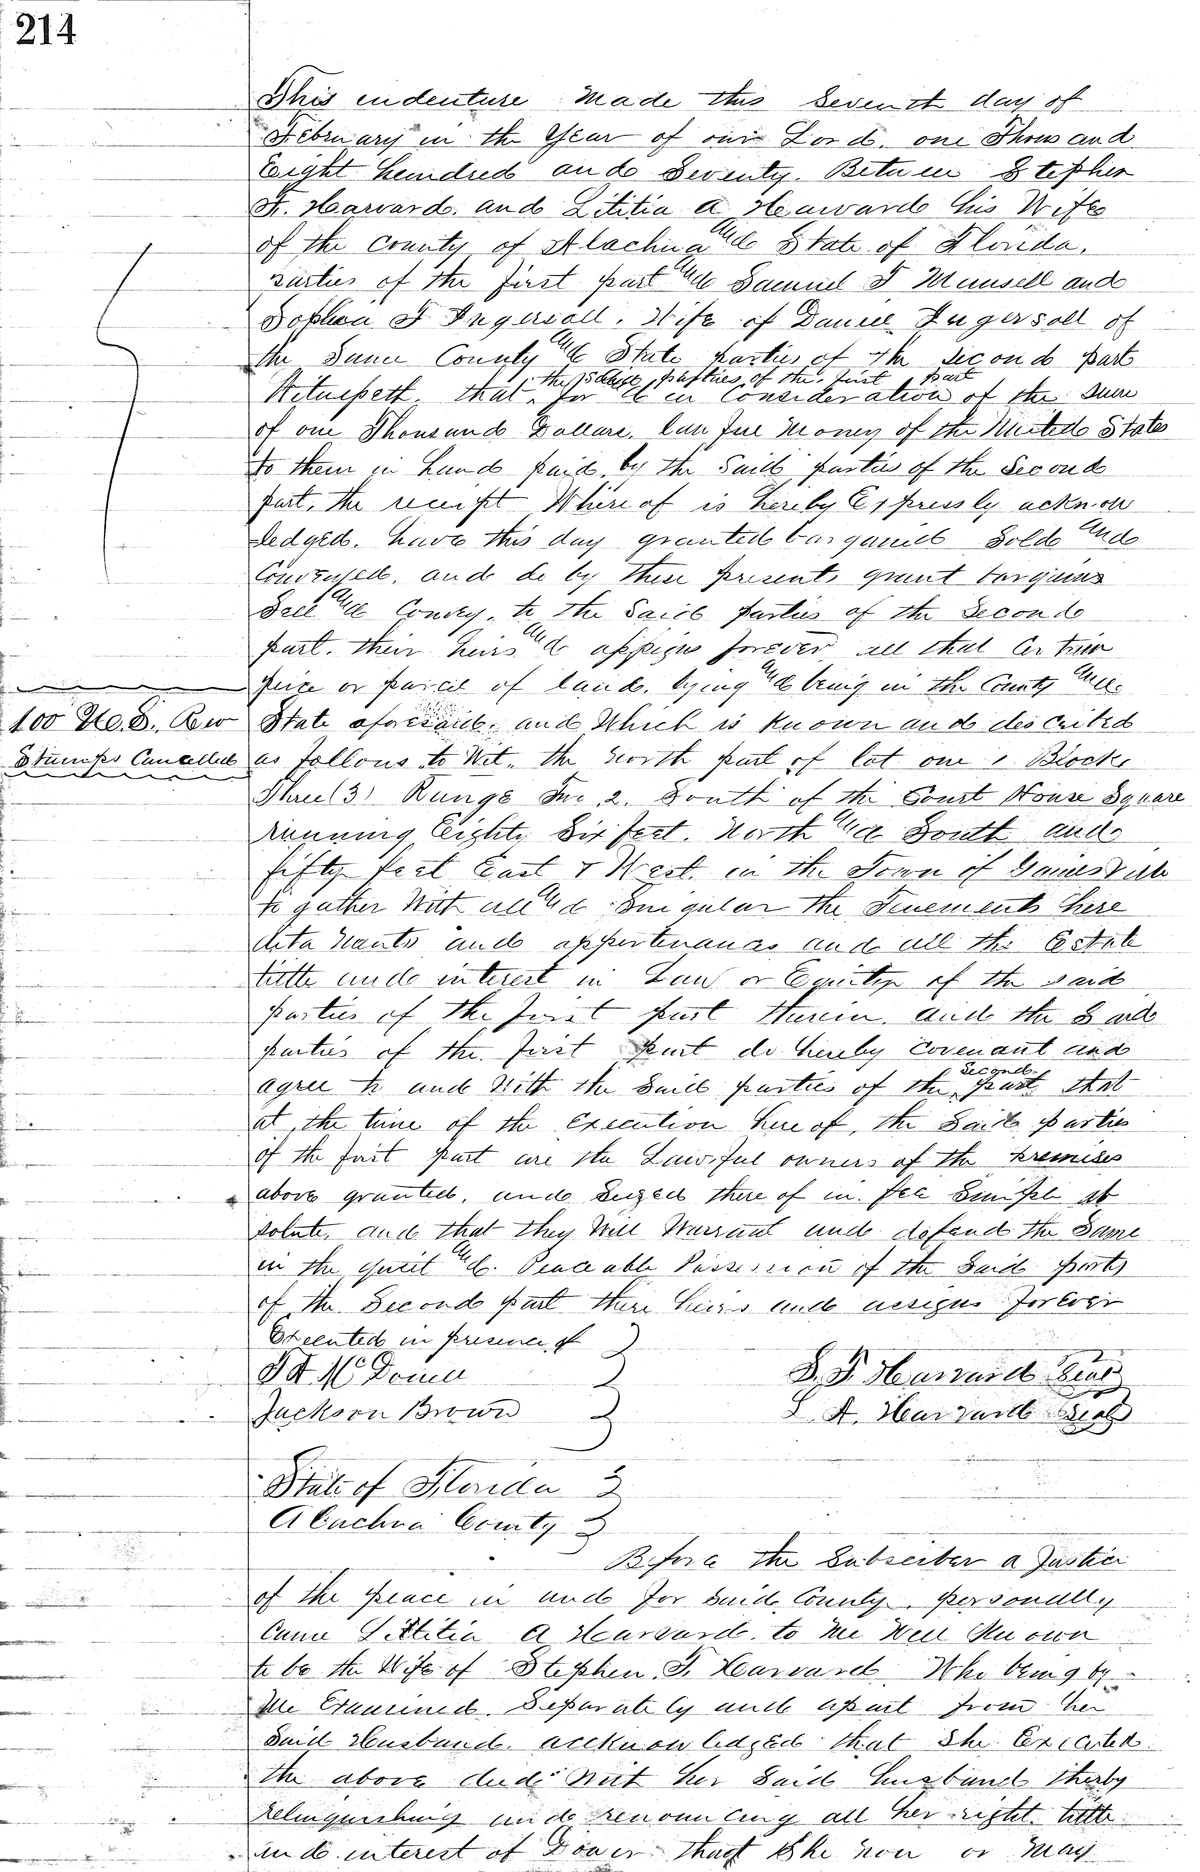 214
This indenture Made this Seventh day of
February in the Year of our Lord. one Thousand
Eight hundred and Seventy. Between Stephen
F. Harvard. and Lititia A Harvard his Wife
of the County of Alachua and State of Florida.
parties of the first part and Samuel F Munsell and
Sophia F Ingersoll. Wife of Daniel Ingersoll of
the Same County and State parties of the second part
Witnesseth. that the said parties of the first part for & in Consideration of the sum
of one Thousand Dollars. lawful Money of the United States
to them in hand paid by the Said parties of the Second
part. the receipt Whereof is hereby Expressly acknow
ledged. have this day granted bargained Sold and
Conveyed. and do by these presents grant bargain
Sell and Convey. to the Said parties of the Second
part. their heirs and assigns forever all that Certain
peice or parcel of land. lying and being in the County and
100 U.S. Rev
Stamps Cancelled
State aforesaid. and Which is known and described
as follows to Wit. the North part of lot one 1 Block
Three (3) Range Two 2. South of the Court House Square
running Eighty Six feet. North and South and
fifty feet East & West. in the Town of Gainesville
to gather With all and Singular the Tenements here
ditaments and appertenances and all the Estate
tittle and interest in Law or Equity of the said
parties of the first part therein. and the Said
parties of the first part do hereby Covenant and
agree to and With the Said parties of the Second part that
at the time of the Execution here of, the Said parties
of the first part are the Lawful owners of the premises
above granted. and Seized there of in. fee Simple ab
solute. and that they Will Warrant and defend the Same
in the quiet and Peaceable Possession of the Said party
of the Second part there heirs and assigns forever
Executed in presence of
McDonell
Jackson Brown
S. F. Harvard Seal
L. A. Harvard Seal
State of Florida
Alachua County
Before the Subscriber a Justice
of the peace in and for said County. personally
Came Littitia A Harvard. to me Well Known
to be the Wife of Stephen. F. Harvard Who being by
Me Examined. Separately and apart from her
Said Husband. acknowledged that She Executed
the above deed With her Said husband therby
relinquishing and renouncing all her right. tittle
and interest of Dower that She now or may